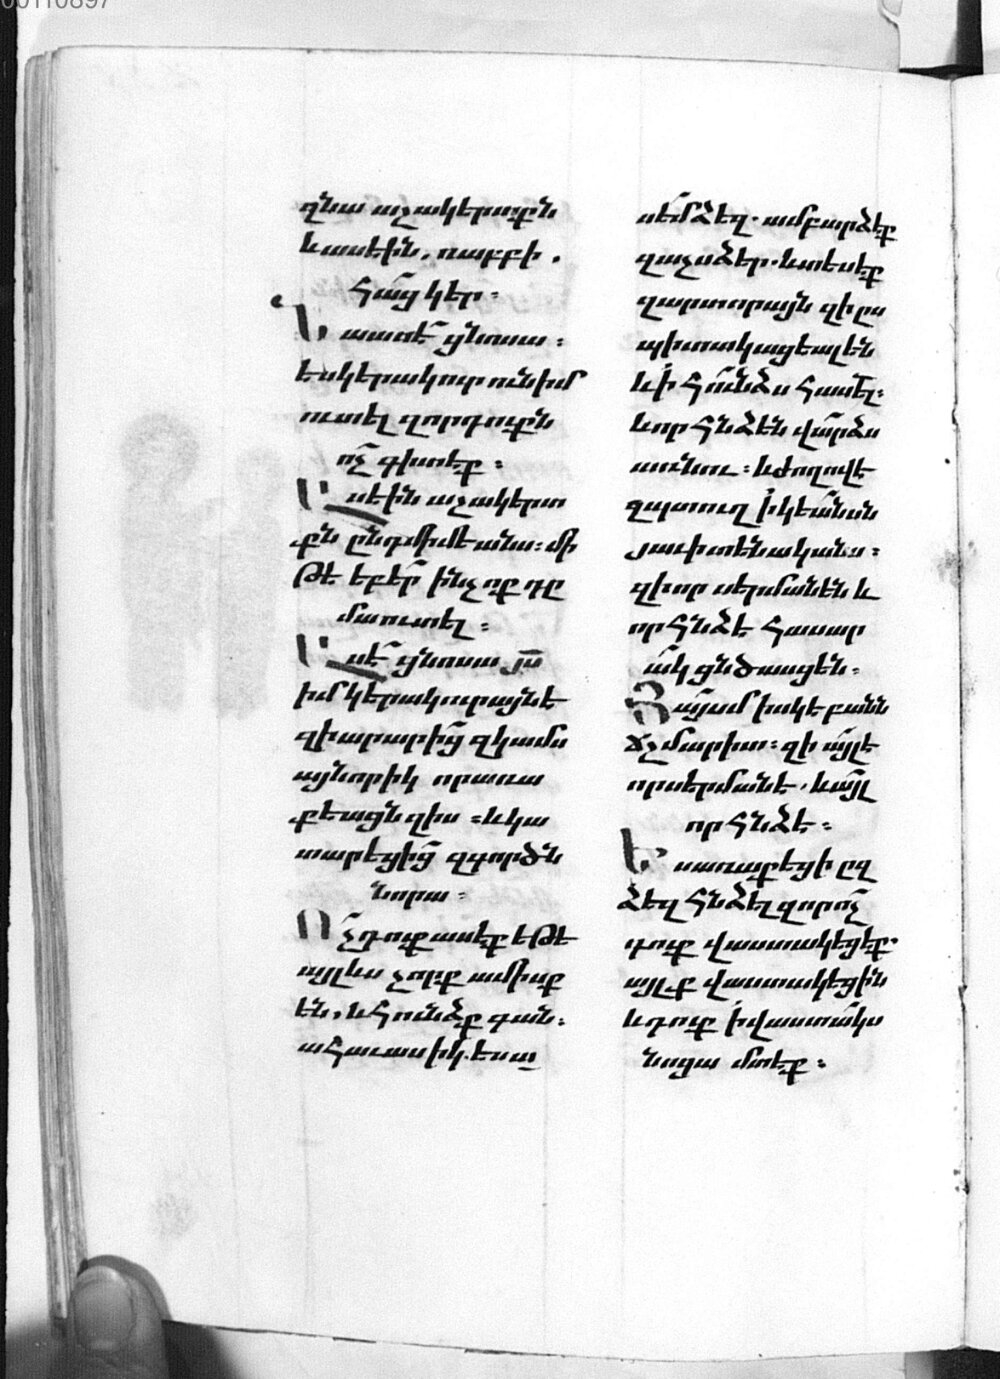 զնա աշակերտքն
և ասեին. ռաբբի.
հաց կեր։
Նա ասե ցնոսա։
ես կերակուր ունիմ
ուտել զոր դուքն
ոչ գիտեք։
Ասեին աշակերտ
քն ընդ միմեանս։ մի
թե եբեր ինչ ոք դը
մա ուտել։
Ասե ցնոսա յս
իմ կերակուր այն է
զի արարից զկամս
այնորիկ որ առա
քեացն զիս ։ և կա
տարեցից զգործն
նորա։
Ոչ դուք ասեք եթե
այլ ևս չորք ամիսք
են. և հունձք գան։
ահաւասիկ. ես ա
սեմ ձեզ. ամբարձեք
զաչս ձեր. և տեսեք
զարտորայն զի ըս
պիտակացեալ են
և ի հունձս հասել։
և որ հնձեն վարձս
առնու։ և ժողովե
զպտուղ ի կեանսն
յաւիտենականս։
զի որ սերմանեն և
որ հնձե հասար
ակ ցնծասցեն։
Յայսմ իսկ է բանն
ճշմարիտ։ զի այլ է
որ սերմանե. և այլ
որ հնձե։
Ես առաքեցի ըզ
ձեզ հնձել զոր ոչ
դուք վաստակեցեք.
այլք վաստակեցին
և դուք ի վաստակս
նոցա մտեք։